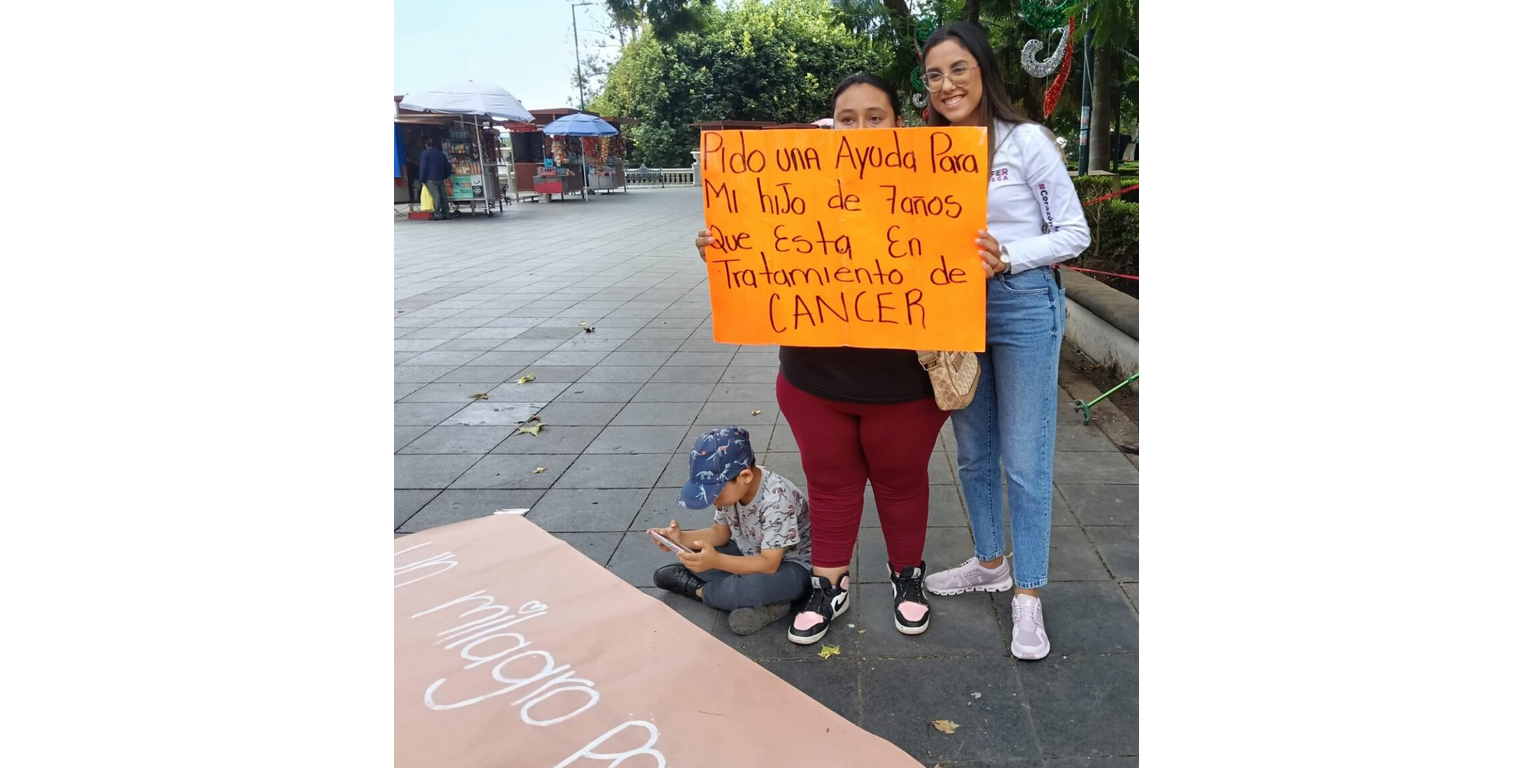 Pido una Ayuda Para
Mi hiJo de 7años
Que Esta En
Tratamiento de
CANCER
FER
#Corazón
un milagro